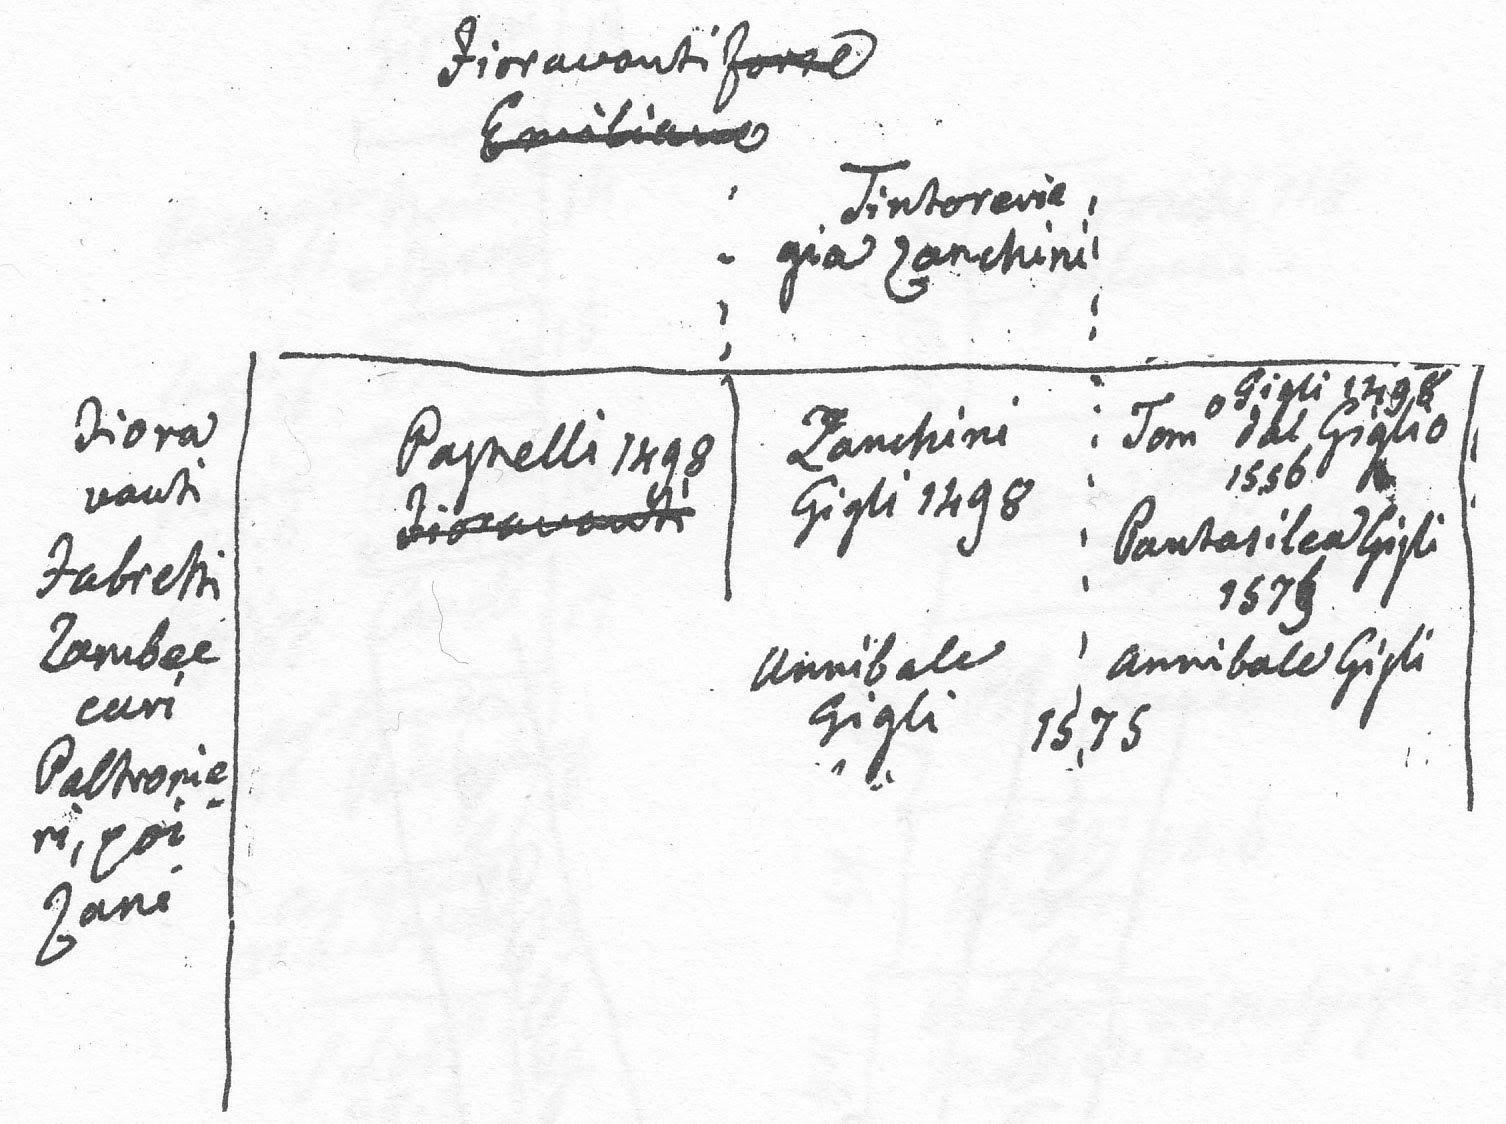 Fioravanti forse
Emiliane
Tintorerie
già Zanchini
Fiora
vanti
Fabretti
Zambec
cari
Paltronie
ri, poi
Zani
Pagnelli 1498
Fioravanti
Zanchini
Gigli 1498
Annibale
Gigli
1575
o Gigli 1498
Tomº dal Giglio
1556
Pantasilea Gigli
1575
Annibale Gigli